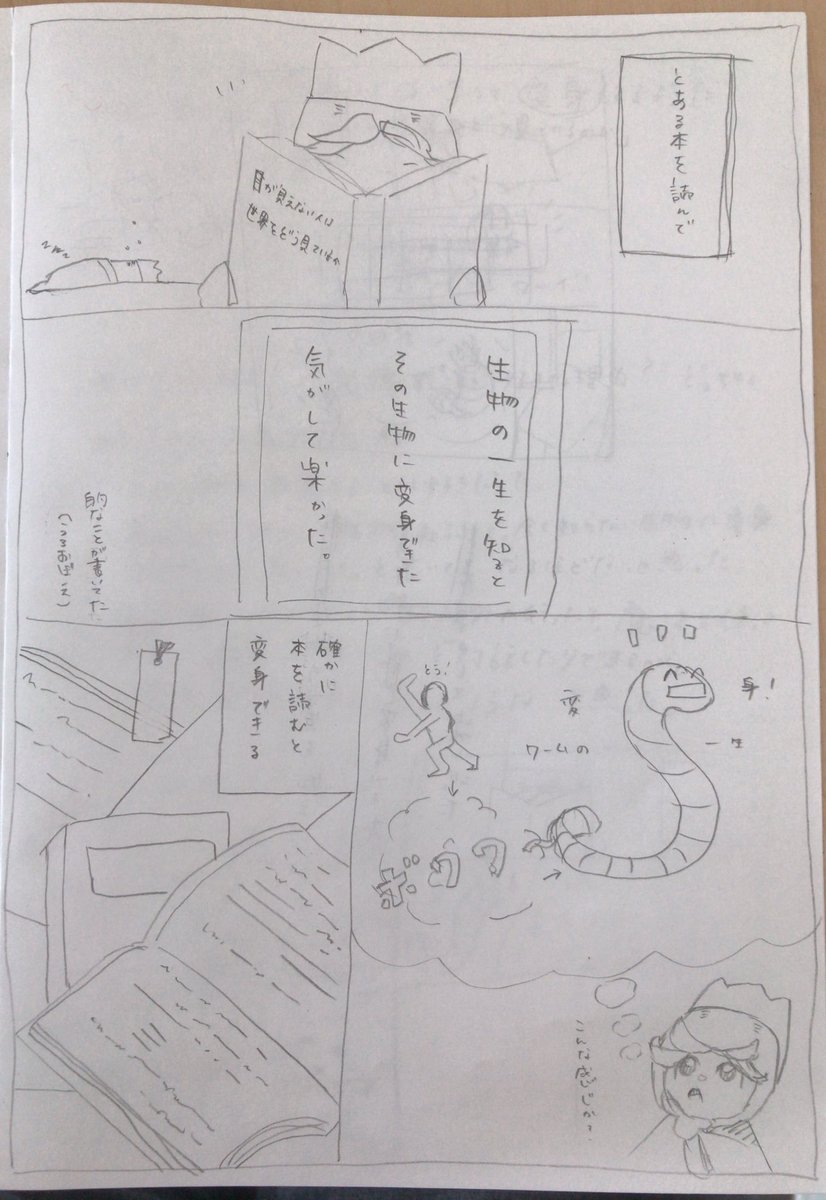 とある本を読んで
目が見えない人は
世界をどう見ているか
zzz
生物の一生を知ると
その生物に変身できた
気がして楽かった。
的なことが書いてた
(うろおぼえ)
とう!
変
身!
ワームの
一生
ボワワ
こんな感じか?
確かに
本を読むと
変身できる